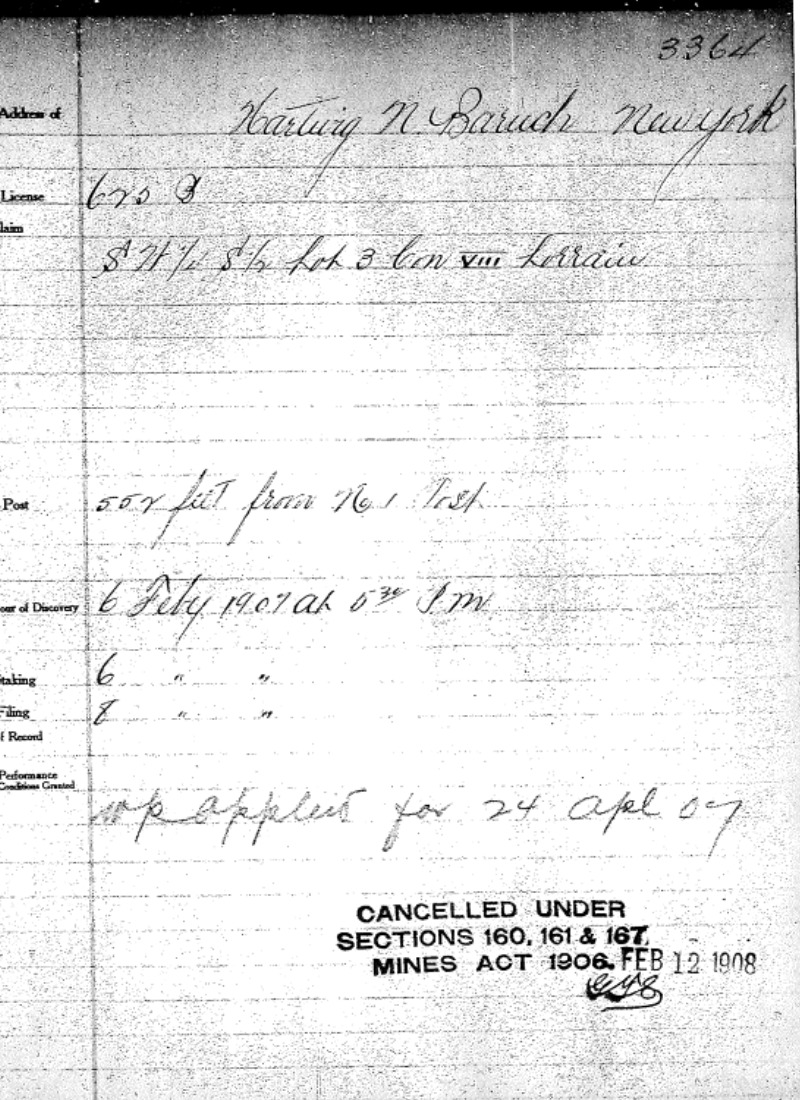 3364
Address of Hartwig N. Baruch New York
License 625 B
laim
S W 1/4 S 1/2 Lot 3 Con VIII Lorrain
Post 552 feet from No 1 Post
our of Discovery 6 Feby 1907 at 5 30 P m
taking 6 " "
Filing 8 " "
f Record
Performance
Conditions Granted
wp applied for 24 Apl 07
CANCELLED UNDER
SECTIONS 160, 161 & 167,
MINES ACT 1906. FEB 12 1908